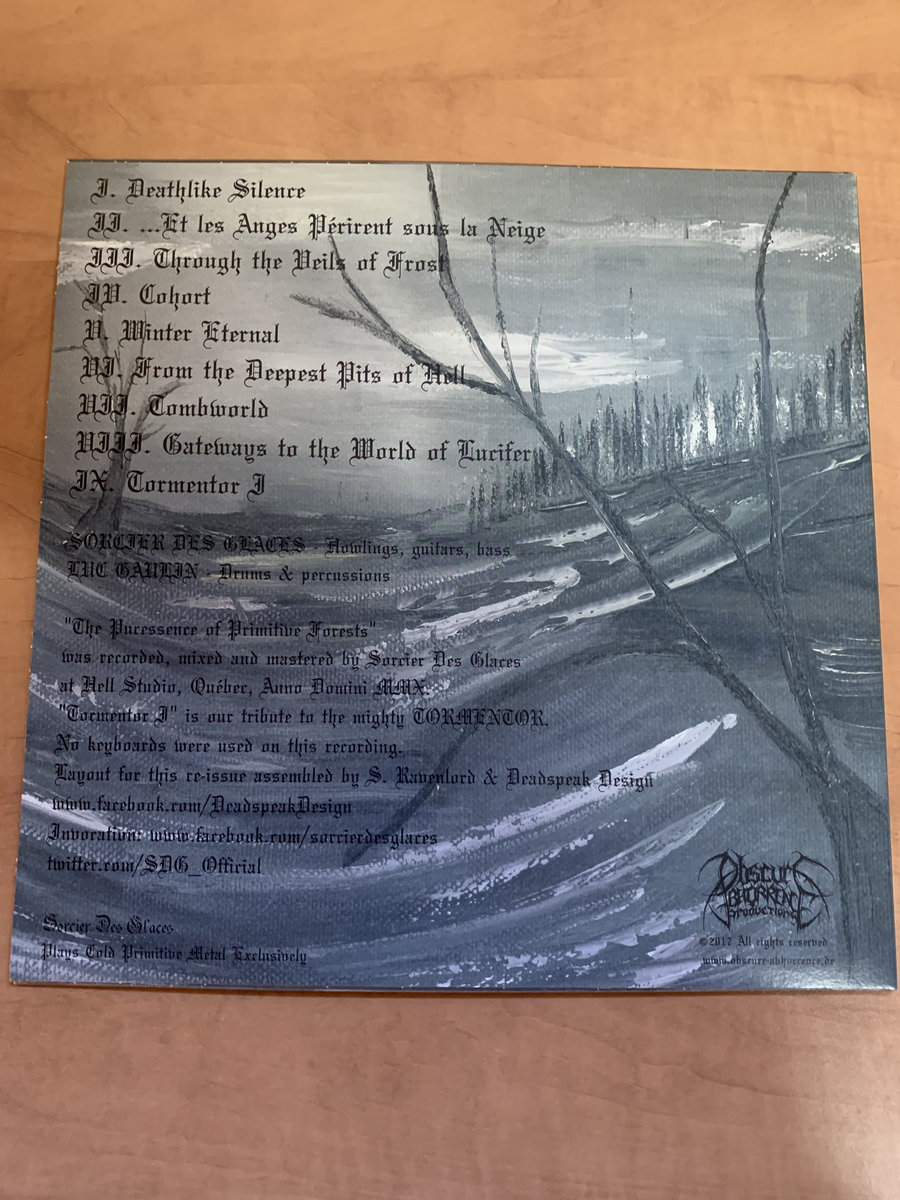 I. Deathlike Silence
II. ...Et les Anges Périrent sous la Neige
III. Through the Veils of Frost
IV. Cohort
V. Winter Eternal
VI. From the Deepest Pits of Hell
VII. Tombworld
VIII. Gateways to the World of Lucifer
IX. Tormentor I
SORCIER DES GLACES - Howlings, guitars, bass
LUC GAULIN - Drums & percussions
"The Puressence of Primitive Forests"
was recorded, mixed and mastered by Sorcier Des Glaces
at Hell Studio, Québec, Anno Domini MMX.
"Tormentor I" is our tribute to the mighty TORMENTOR.
No keyboards were used on this recording.
Layout for this re-issue assembled by S. Ravenlord & Deadspeak Design
www.facebook.com/DeadspeakDesign
Invocation: www.facebook.com/sorcierdesglaces
twitter.com/SDG_Official
Sorcier Des Glaces
Plays Cold Primitive Metal Exclusively
Obscure
Abhorrence
Productions
©2017 All rights reserved
www.obscure-abhorrence.de